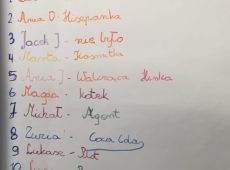 2 Anna D: Hiszpanka
3 Jacek J - nie było
4 Marta - Kosmitka
5 Ania J - Walcząca
6 Magda - kotek
7 Michał - Agent
8 Zuzia - Coca Cola
9 Łukasz -
10